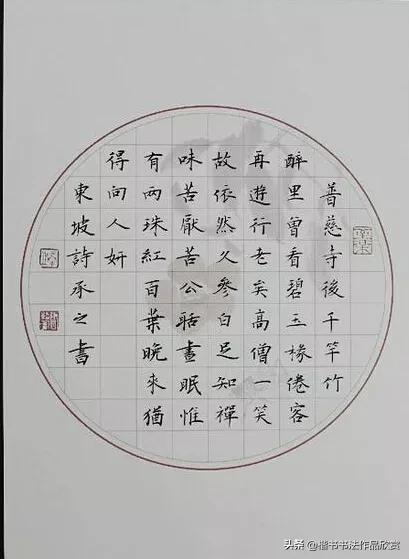 普慈寺後千竿竹
醉里曾看碧玉椽倦客
再遊行老矣高僧一笑
故依然久參白足知禪
味苦厭苦公聒晝眠惟
有兩珠紅百葉晚來猶
得向人妍
東坡詩承之書
头条 @楷书书法作品欣赏